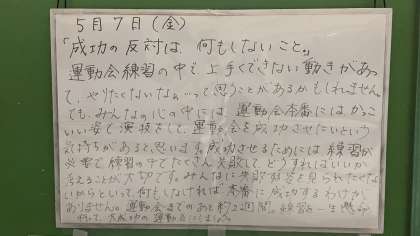 5月7日(金)
「成功の反対は、何もしないこと。」
運動会練習の中で、上手くできない動きがあっ
て、やりたくないなぁ…って思うことがあるかもしれません。
でも、みんなの心の中には、運動会本番にはかっこ
いい姿で演技をして、運動会を成功させたいという
気持ちがあると思います。成功させるためには、練習が
必要で、練習の中でたくさん失敗して、どうすればいいか
考えることが大切です。みんなに失敗する姿を見られたくな
いからといって、何もしなければ、本番に成功するわけが
ありません。運動会まであと約2週間。練習を一生懸命
して、大成功の運動会にしましょう。